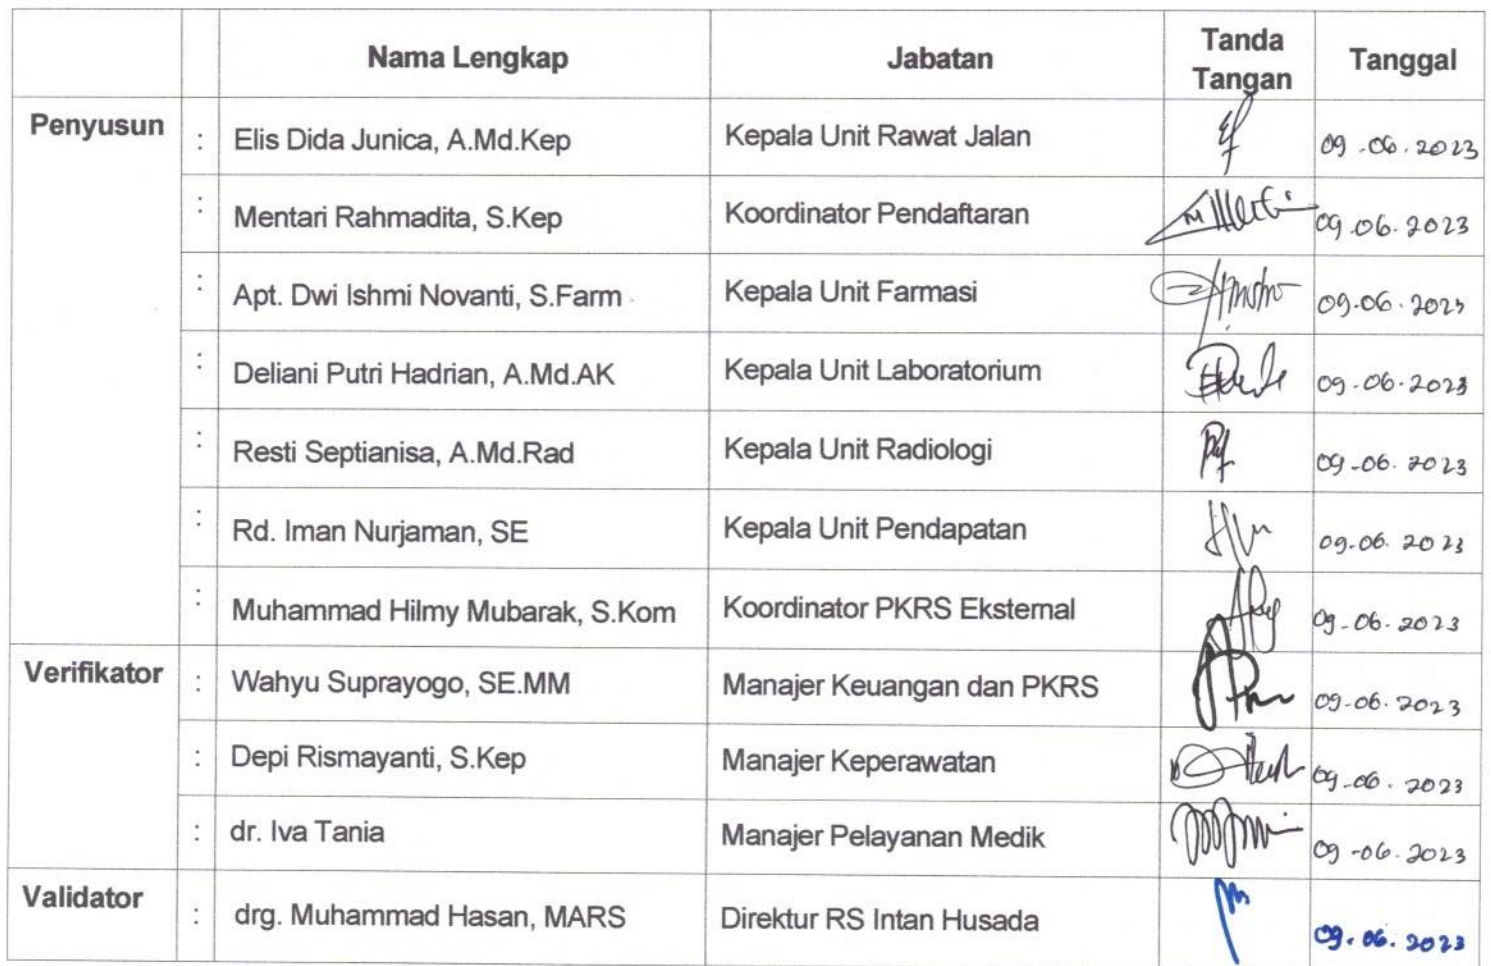 Nama Lengkap Jabatan Tanda Tangan Tanggal
Penyusun : Elis Dida Junica, A.Md.Kep Kepala Unit Rawat Jalan 09-06.2023
: Mentari Rahmadita, S.Kep Koordinator Pendaftaran 09.06.2023
: Apt. Dwi Ishmi Novanti, S.Farm Kepala Unit Farmasi 09-06.2023
: Deliani Putri Hadrian, A.Md.AK Kepala Unit Laboratorium 09-06.2023
: Resti Septianisa, A.Md.Rad Kepala Unit Radiologi 09-06.2023
: Rd. Iman Nurjaman, SE Kepala Unit Pendapatan 09-06.2023
: Muhammad Hilmy Mubarak, S.Kom Koordinator PKRS Eksternal 09-06.2023
Verifikator : Wahyu Suprayogo, SE.MM Manajer Keuangan dan PKRS 09-06.2023
: Depi Rismayanti, S.Kep Manajer Keperawatan 09-06.2023
: dr. Iva Tania Manajer Pelayanan Medik 09-06.2023
Validator : drg. Muhammad Hasan, MARS Direktur RS Intan Husada 09.06.2023